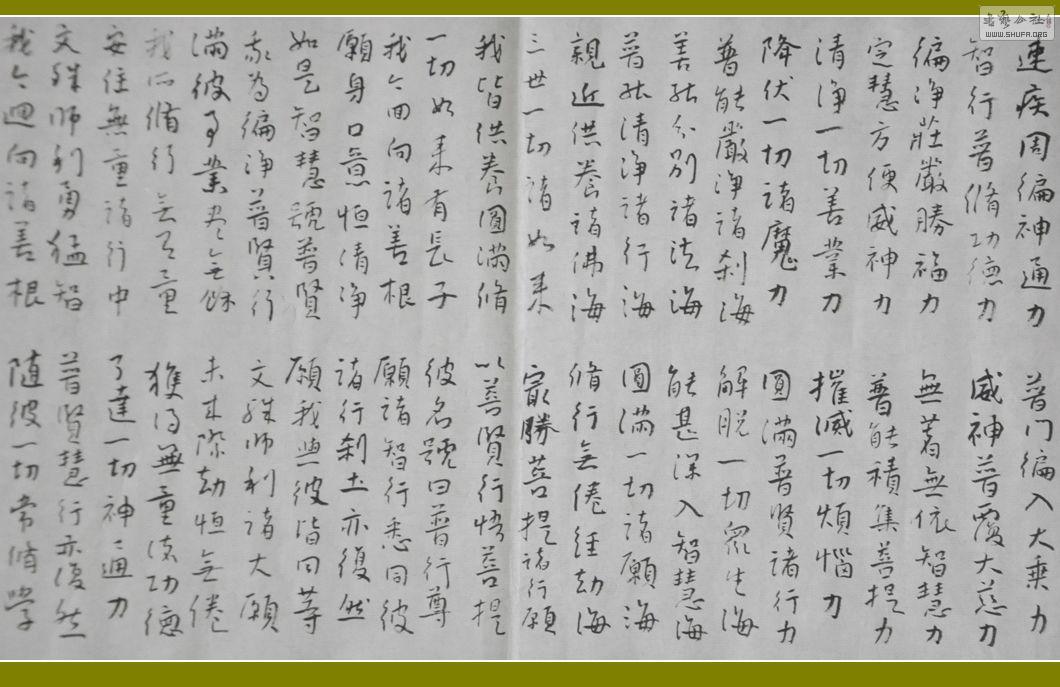 速疾周徧神通力 普门徧入大乘力
智行普脩功德力 威神普覆大慈力
徧净莊嚴勝福力 無著無依智慧力
定慧方便威神力 普能積集菩提力
清净一切善業力 摧滅一切煩惱力
降伏一切諸魔力 圓滿普賢諸行力
普能嚴净諸刹海 解脱一切眾生海
善能分别諸法海 能甚深入智慧海
普能清净諸行海 圓滿一切諸願海
親近供養諸佛海 脩行无倦經劫海
三世一切諸如来 最勝菩提諸行願
我皆供養圓滿脩 以普賢行悟菩提
一切如来有長子 彼名號曰普行尊
我今回向諸善根 願諸智行悉同彼
願身口意恒清净 諸行刹土亦復然
如是智慧號普賢 願我與彼皆同等
我為徧净普賢行 文殊師利諸大願
滿彼事業尽无餘 未来際劫恒无倦
我所脩行无有量 獲得無量諸功德
安住無量諸行中 了達一切神通力
文殊師利勇猛智 普賢慧行亦復然
我今迴向諸善根 随彼一切常脩學
書藝公社
WWW.SHUFA.ORG